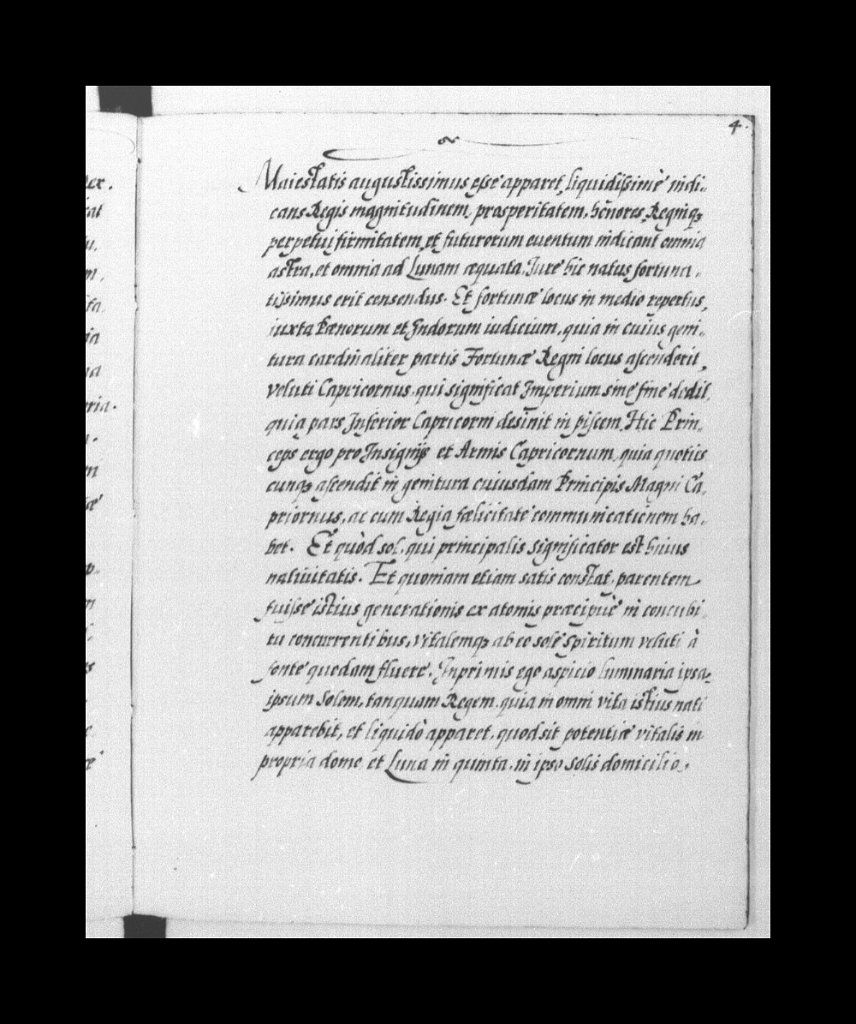 4.
Maiestatis augustissimus esse apparet, liquidissimè indi-
cans Regis magnitudinem, prosperitatem, honores, Regniq3
perpetui firmitatem, et futurorum euentum indicant omnia
astra, et omnia ad Lunam æquata. Iure hic natus fortuna-
tissimus erit censendus. Et fortunæ locus in medio repertus,
iuxta Pænorum et Indorum iudicium, quia in cuius geni-
tura cardinaliter partis Fortunæ Regni locus ascenderit,
veluti Capricornus, qui significat Imperium sine fine dedit,
quia pars Inferior Capricorni desinit in piscem, Hic Prin-
ceps ergo pro Insignijs et Armis Capricornum, quia quoties
cunq3 ascendit in genitura cuiusdam Principis Magni Ca-
priornus, ac cum Regia fælicitate communicationem ha-
bet. Et quòd sol, qui principalis significator est huius
natiuitatis. Et quoniam etiam satis constat, parentem
fuisse istius generationis ex atomis præcipuè in concubi-
tu concurrentibus, vitalemq3 ab eo sole spiritum veluti à
fonte quodam fluere. Inprimis ego aspicio luminaria ipsa,
ipsum Solem, tanquam Regem, quia in omni vita istius nati
apparebit, et liquidò apparet, quod sit potentiæ vitalis in
propria domo et Luna in quinta, in ipso solis domicilio.